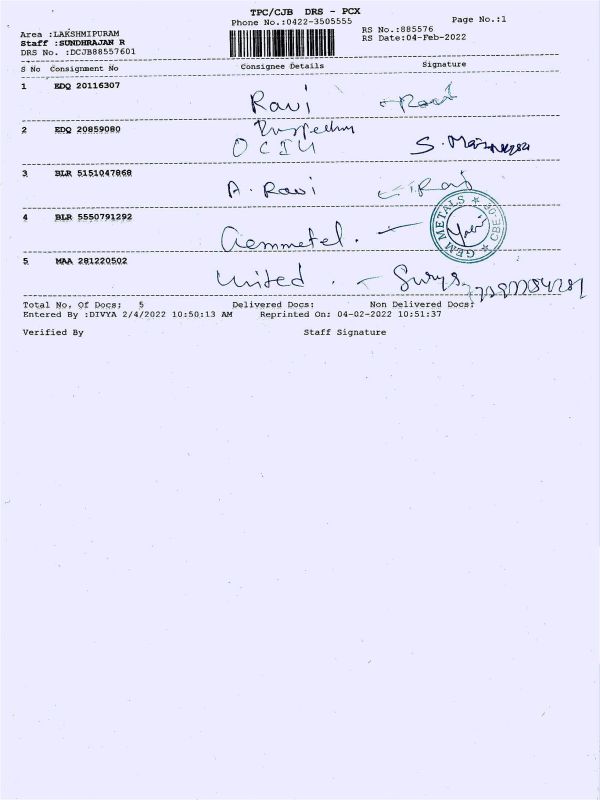 TPC/CJB DRS - PCX
Phone No.:0422-3505555
Page No.:1
Area :LAKSHMIPURAM
RS No.:885576
Staff :SUNDHRAJAN R
RS Date:04-Feb-2022
DRS No. :DCJB88557601
S No Consignment No Consignee Details Signature
1 EDQ 20116307 Ravi
2 EDQ 20859080
3 BLR 5151047868 A. Ravi
4 BLR 5550791292 Gemmetel. GEM METALS
5 MAA 281220502 United. Surya
Total No. Of Docs: 5 Delivered Docs: Non Delivered Docs:
Entered By :DIVYA 2/4/2022 10:50:13 AM Reprinted On: 04-02-2022 10:51:37
Verified By Staff Signature